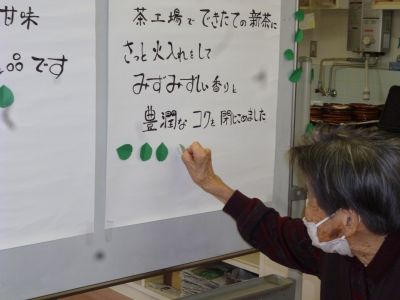 甘味
品です
茶工場でできたての新茶に
さっと火入れをして
みずみずしい香りと
豊潤なコクを閉じこめました